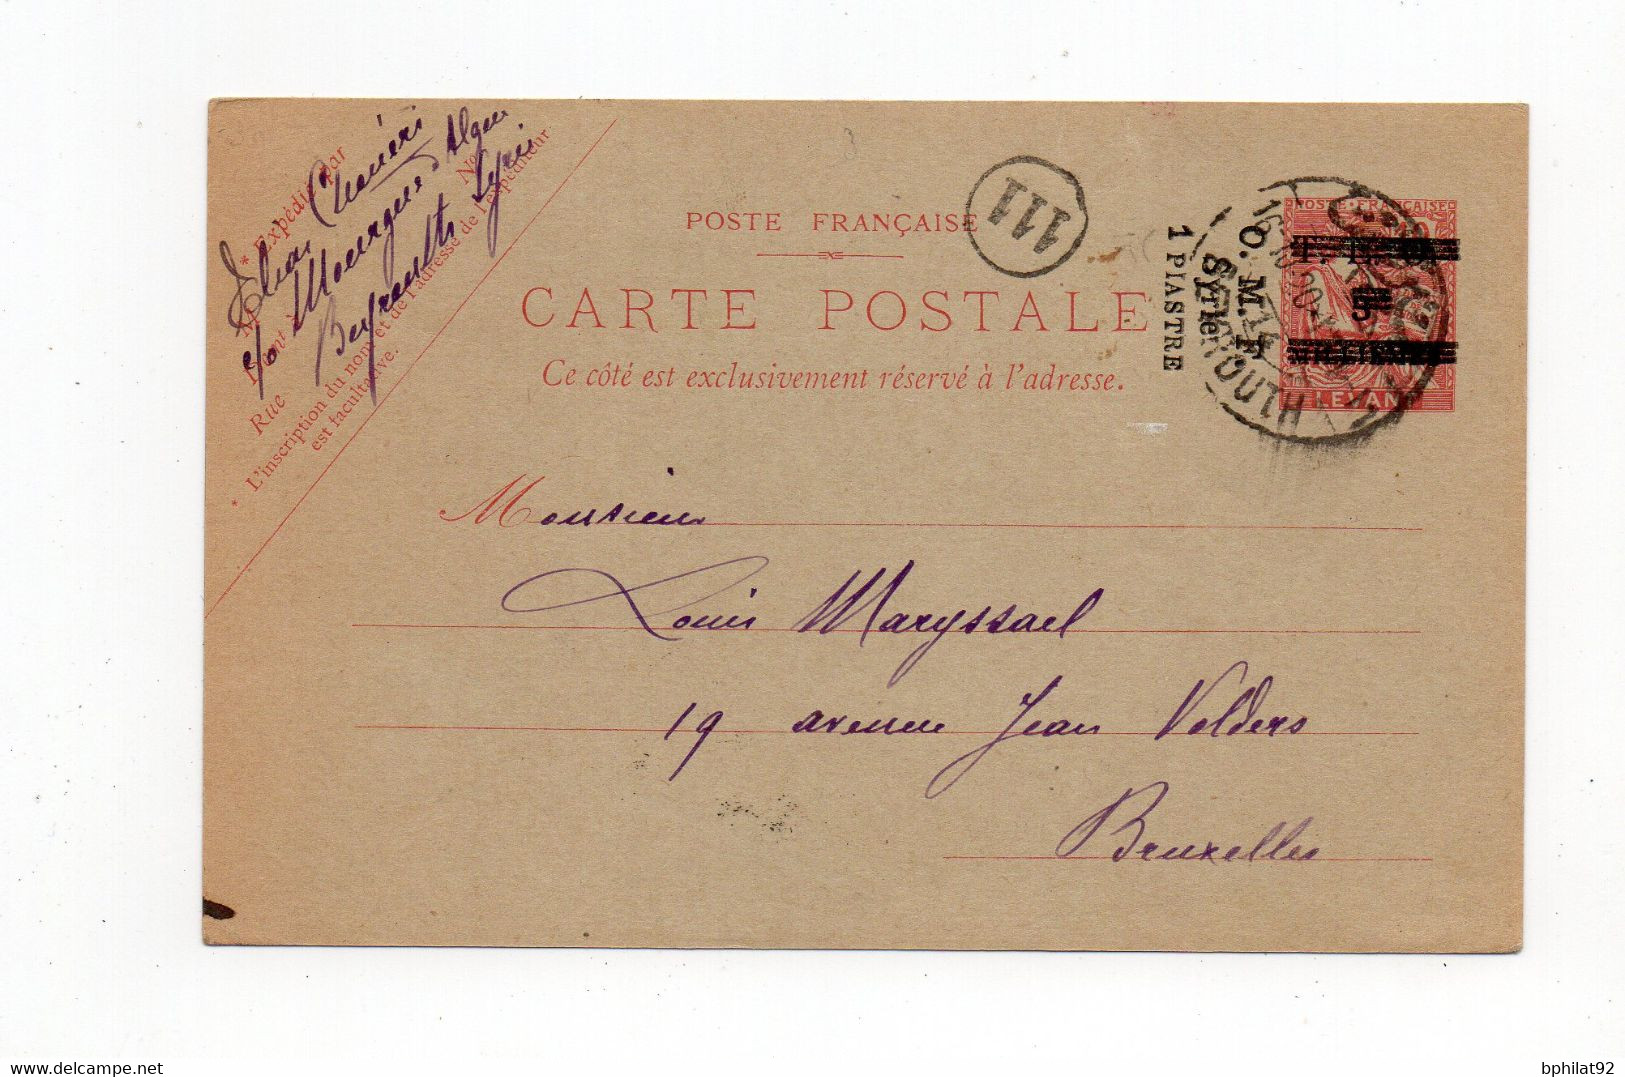 * Expédié par
Nº
Rue
* L'inscription du nom et de l'adresse de l'expéditeur
est facultative.
Beyrouth Syrie
POSTE FRANÇAISE
CARTE POSTALE
Ce côté est exclusivement réservé à l'adresse.
111
1 PIASTRE
O. M. F.
Syrie
POSTE FRANÇAISE
T. E. O.
5
MILLIEMES
LEVANT
BEYROUTH
Monsieur
Louis Maryssael
19 avenue Jean Volders
Bruxelles
bphilat92